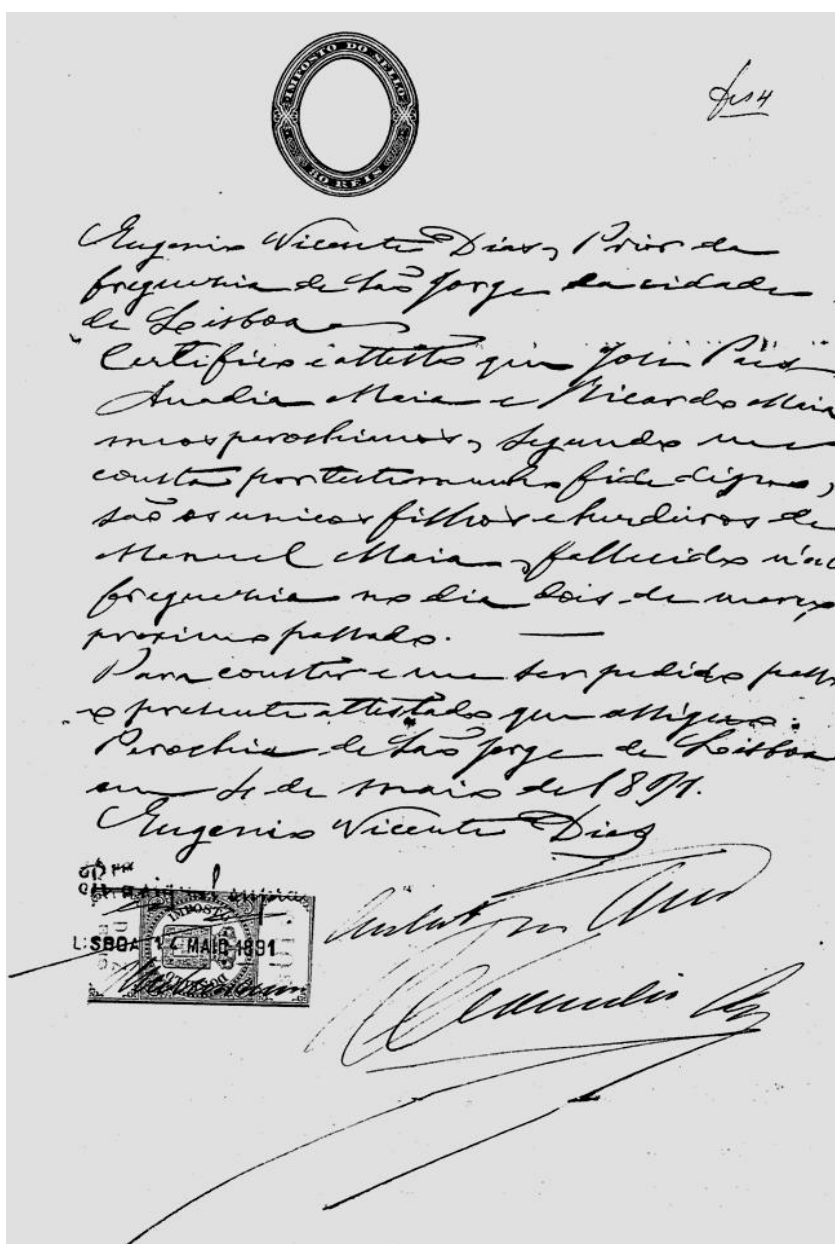 IMPOSTO DO SELLO
80 REIS
fls 4
Eugenio Vicente Dias, Prior da
freguezia de São Jorge da cidade
de Lisboa
Certifico e attesto que José Paes
Anadia Maia e Ricardo Maia
meos parochianos, segundo me
consta por testemunho fide digno,
são os unicos filhos e herdeiros de
Manuel Maia, fallecido n'es
freguezia no dia dois de março
proximo passado.
Para constar e me ser pedido pass
o presente attestado que assigno.
Parochia de São Jorge de Lisboa
em 4 de maio de 1891.
Eugenio Vicente Dias
IMPOSTO
LISBOA 14 MAIO 1891
DO SELLO